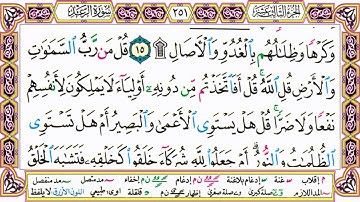 الجزء الثالث عشر ٢٥١ سورة الرعد
وَكَرْهًا وَظِلَالُهُم بِالْغُدُوِّ وَالْآصَالِ ۩ ١٥ قُلْ مَن رَّبُّ السَّمَاوَاتِ
وَالْأَرْضِ قُلِ اللَّهُ ۚ قُلْ أَفَاتَّخَذْتُم مِّن دُونِهِ أَوْلِيَاءَ لَا يَمْلِكُونَ لِأَنفُسِهِمْ
نَفْعًا وَلَا ضَرًّا ۚ قُلْ هَلْ يَسْتَوِي الْأَعْمَىٰ وَالْبَصِيرُ أَمْ هَلْ تَسْتَوِي
الظُّلُمَاتُ وَالنُّورُ ۗ أَمْ جَعَلُوا لِلَّهِ شُرَكَاءَ خَلَقُوا كَخَلْقِهِ فَتَشَابَهَ الْخَلْقُ